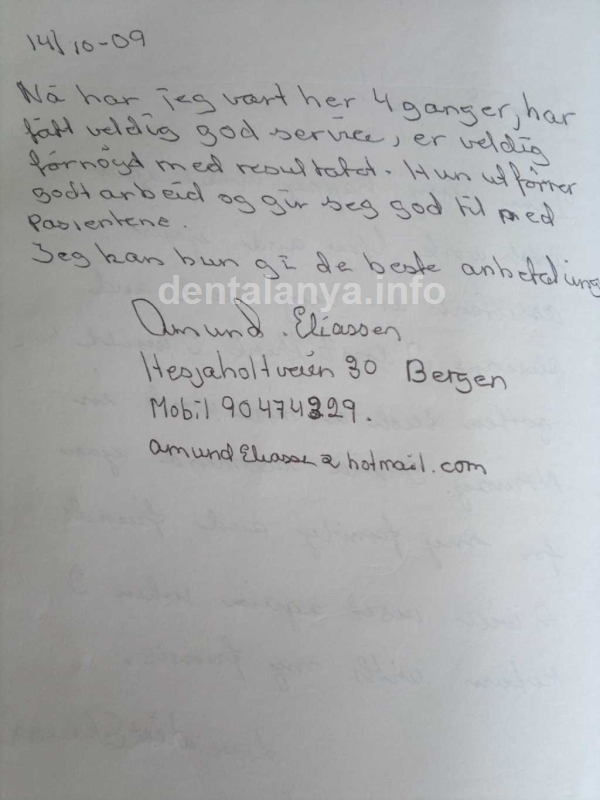 14/10-09
Nå har jeg vært her 4 ganger, har
fått veldig god service, er veldig
förnöyd med resultatet. Hun utförrer
godt arbeid og gir seg god til med
Pasientene.
Jeg kan bun gi de beste anbefaling
dentalanya.info
Amund. Eliassen
Hesjaholtveien 30 Bergen
Mobil 90474329.
amundEliassen@hotmail.com